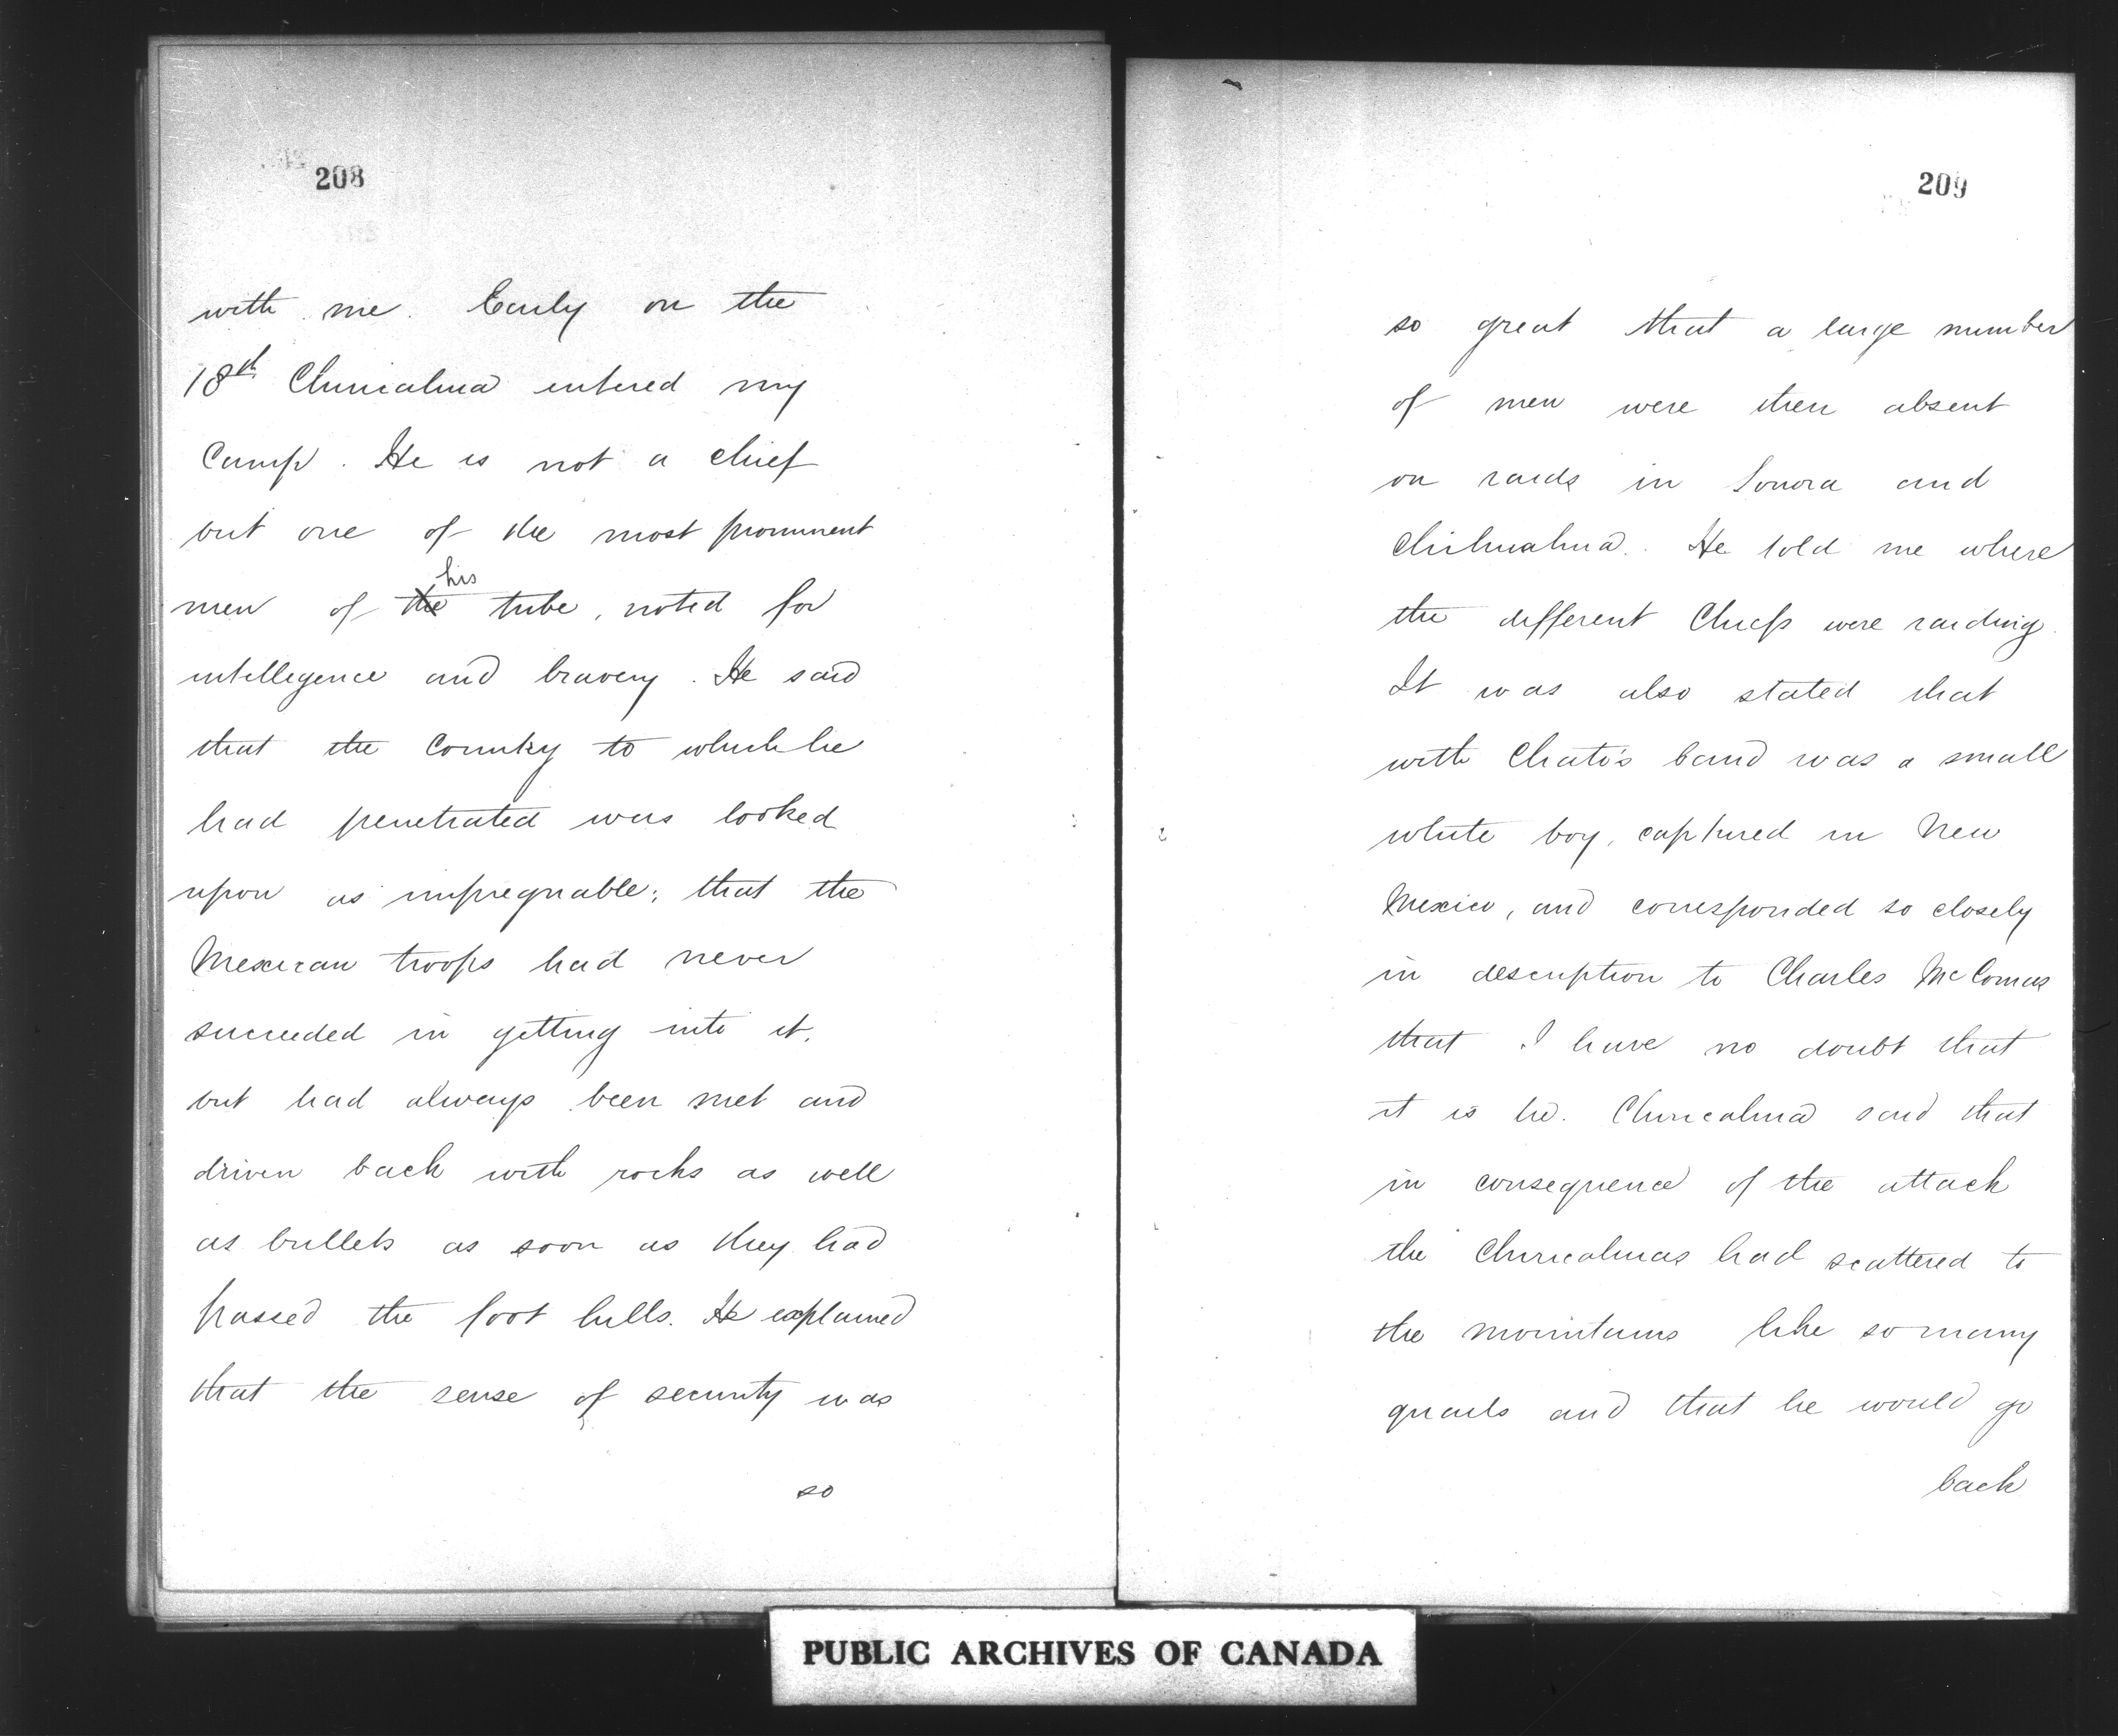 208
with me. Early on the
18th Chiricahua entered my
Camp. He is not a chief
but one of the most prominent
his
men of the tribe, noted for
intellegence and bravery. He said
that the Country to which he
had penetrated was looked
upon as impregnable; that the
Mexican troops had never
succeeded in getting into it,
but had always been met and
driven back with rocks as well
as bullets as soon as they had
passed the foot hills. He explained
that the sense of security was
so
209
so great that a large number
of men were then absent
on raids in Sonora and
Chihuahua. He told me where
the different Chiefs were raiding.
It was also stated that
with Chato's band was a small
white boy, captured in New
Mexico, and corresponded so closely
in description to Charles McComas
that I have no doubt that
it is he. Chiricahua said that
in consequence of the attack
the Chiricahuas had scattered to
the mountains like so many
quails and that he would go
back
PUBLIC ARCHIVES OF CANADA